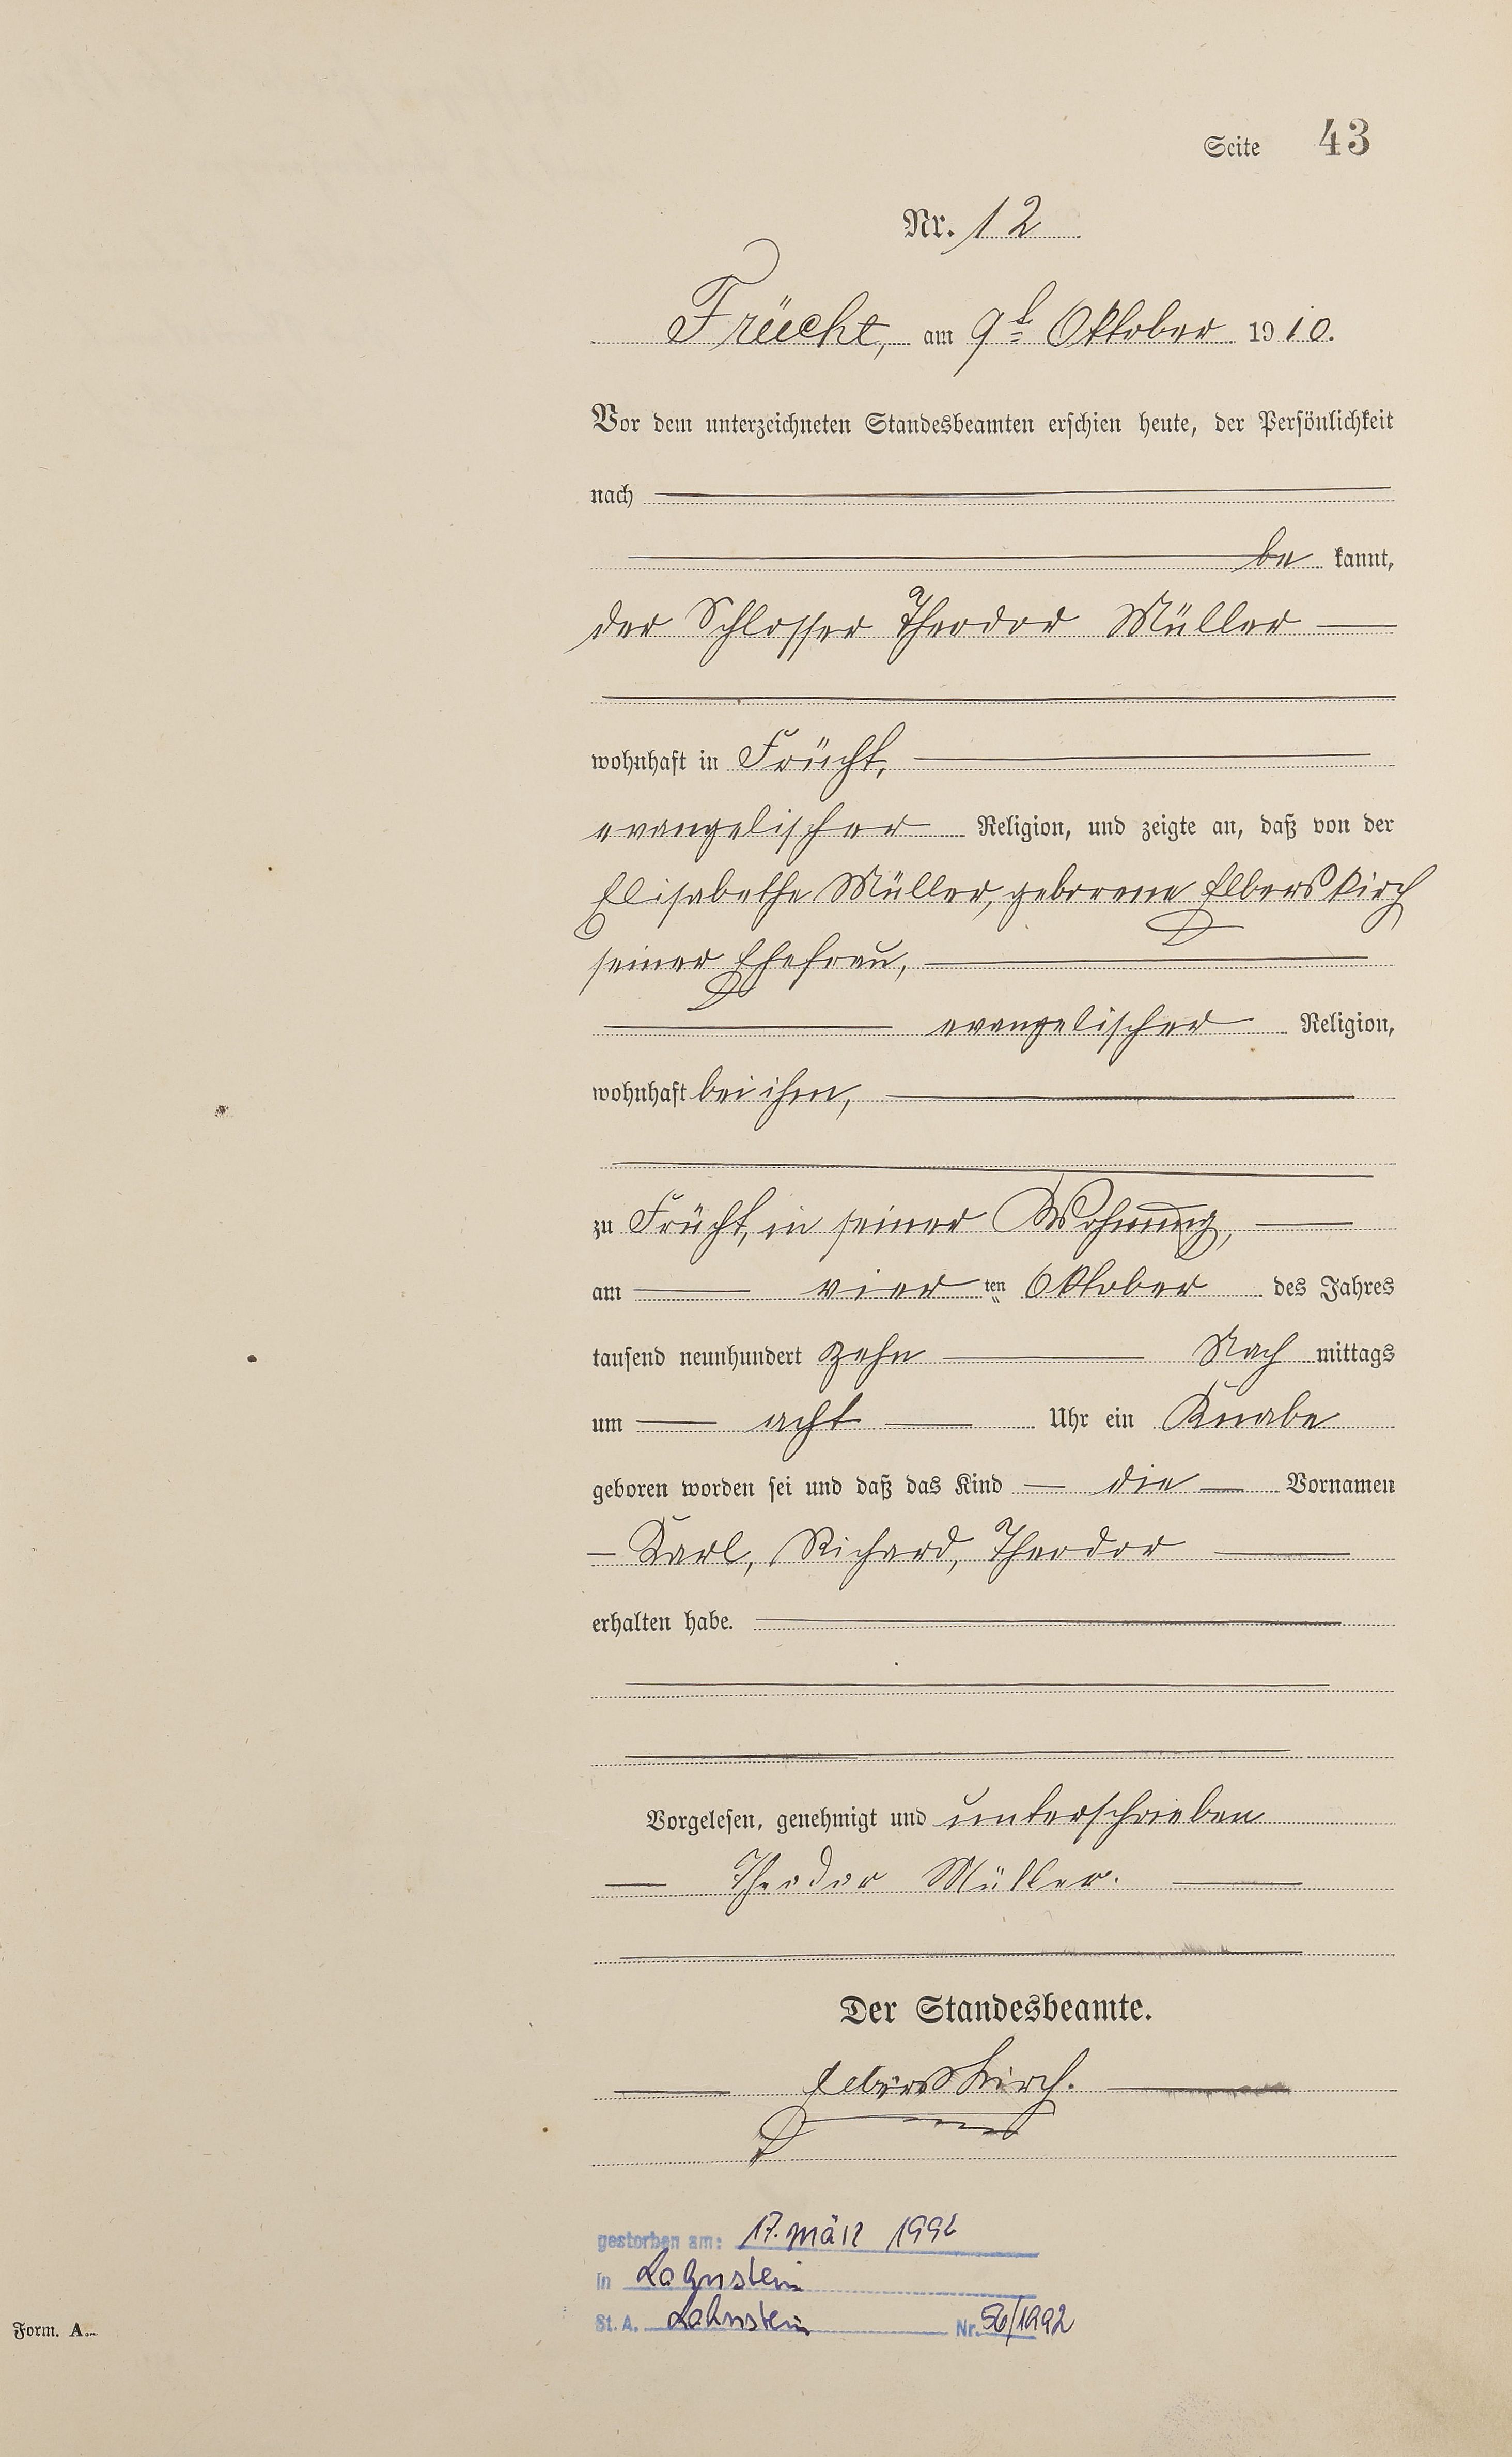 Seite 43
Nr. 12
Frücht, am 9t Oktober 1910.
Vor dem unterzeichneten Standesbeamten erschien heute, der Persönlichkeit
nach
be kannt,
der Schlosser Theodor Müller
wohnhaft in Frücht,
evangelischer Religion, und zeigte an, daß von der
Elisabethe Müller, geborene Elberskirch
seiner Ehefrau,
evangelischer Religion,
wohnhaft bei ihm,
zu Frücht, in seiner Wohnung,
am vier ten Oktober des Jahres
tausend neunhundert zehn Nach mittags
um acht Uhr ein Knabe
geboren worden sei und daß das Kind die Vornamen
Karl, Richard, Theodor
erhalten habe.
Vorgelesen, genehmigt und unterschrieben
Theodor Müller.
Der Standesbeamte.
Elberskirch.
gestorben am: 17. März 1992
in Lahnstein
St. A. Lahnstein Nr. 56/1992
Form. A.